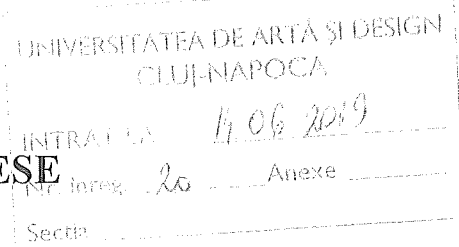 UNIVERSITATEA DE ARTĂ ȘI DESIGN
CLUJ-NAPOCA
INTRAT LA 14 06 2019
ESE
Nr. înreg. 20 Anexe
Secția